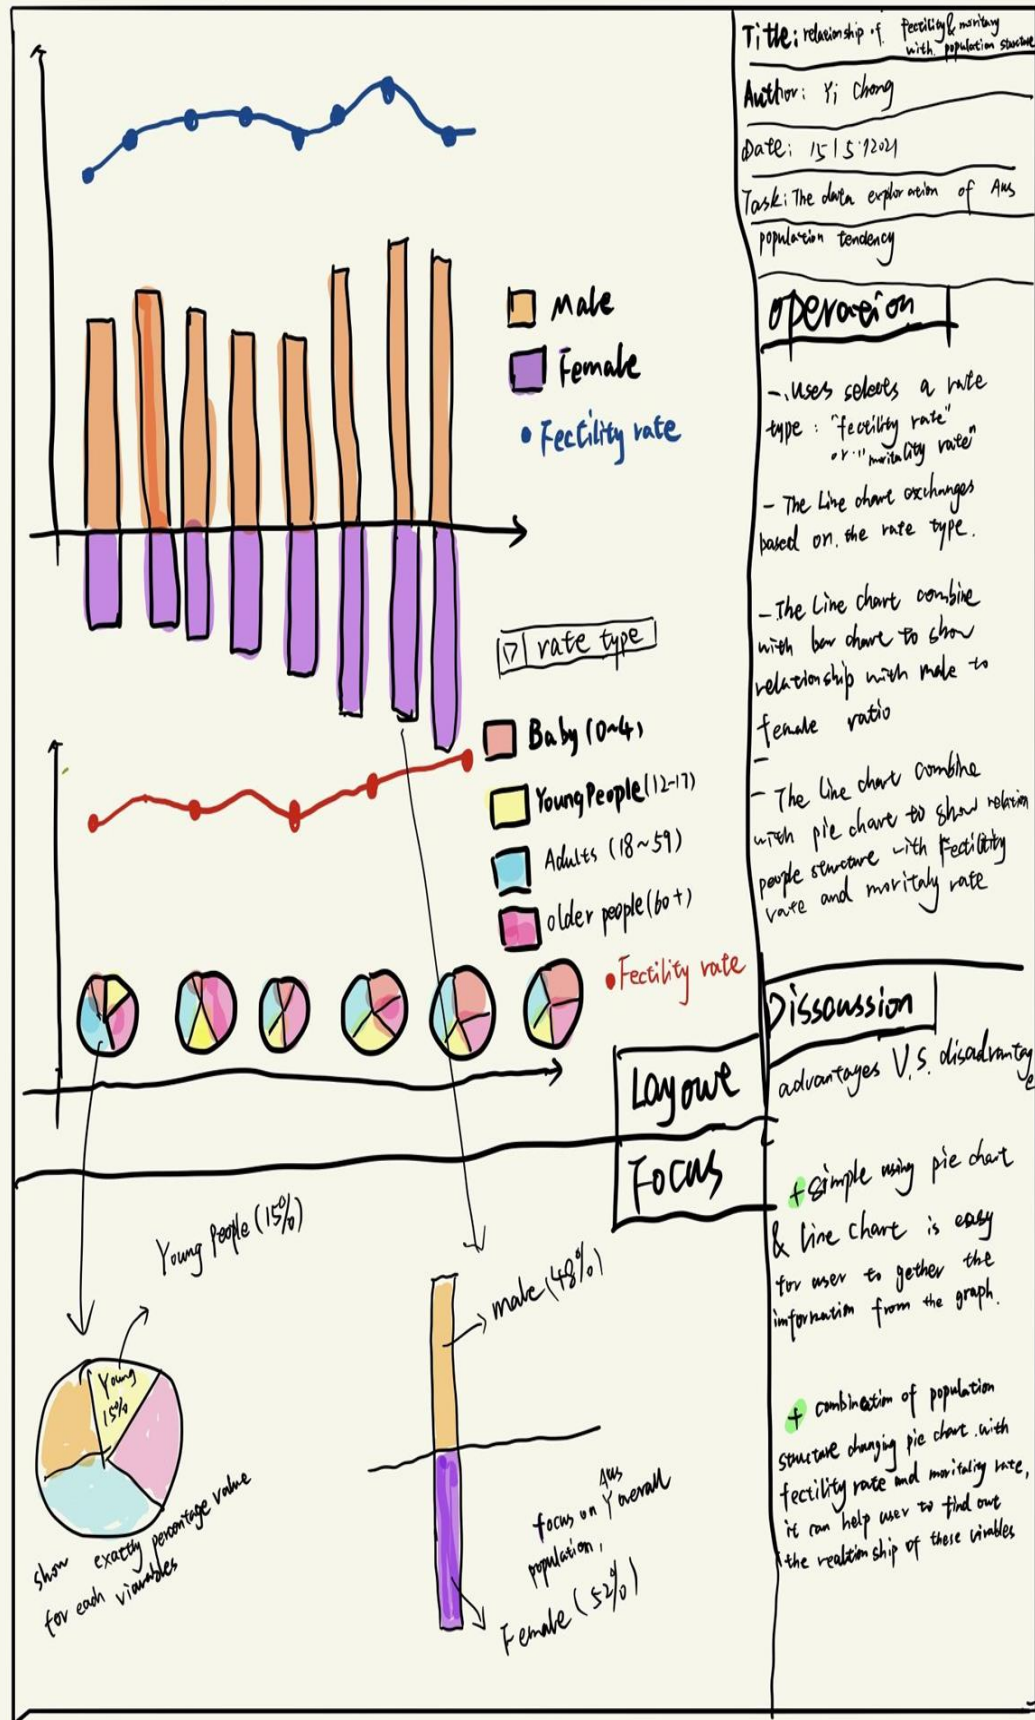 Title: relationship of fectility & moritary
with population structure
Author: Yi Chong
Date: 15/5/2021
Task: The data exploration of Aus
population tendency
Male
Female
Fectility rate
rate type
Baby (0~4)
Young People (12-17)
Adults (18~59)
older people (60+)
Fectility rate
Layout
Focus
Young People (15%)
Young
15%
show exactly percentage value
for each viarables
male (48%)
focus on Aus overall
population,
Female (52%)
operation
- Uses selects a rate
type: "fectility rate"
or "moritality rate"
- The Line chart exchanges
based on the rate type.
- The Line chart combine
with bar chart to show
relationship with male to
female ratio
-
- The line chart combine
with pie chart to show relation
people structure with Fectility
rate and moritaly rate
Disscussion
advantages V.S. disadvantage
+ simple using pie chart
& line chart is easy
for user to gether the
information from the graph.
+ combination of population
structure changing pie chart with
fectility rate and moritality rate,
it can help user to find out
the realtionship of these virables